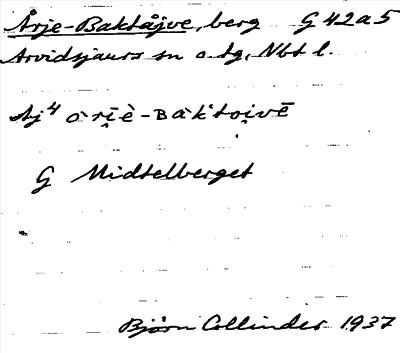 Årje-Baktåjve, berg G 42 a 5
Arvidsjaurs sn o. tg, Nbt l.
Aj⁴ o̯rīè-Bàk'toi̯vē
G Midtelberget
Björn Collinder 1937